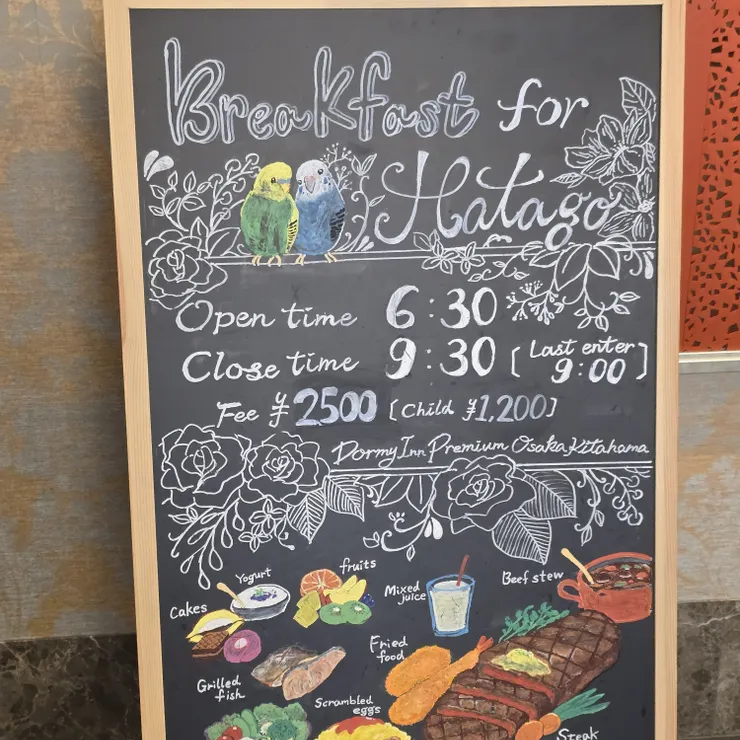 Breakfast for
Hatago
Open time 6:30
Close time 9:30 [Last enter 9:00]
Fee ¥2500 [Child ¥1,200]
Dormy Inn Premium Osaka Kitahama
Yogurt
fruits
Mixed juice
Beef stew
Cakes
Fried food
Grilled fish
Scrambled eggs
Steak